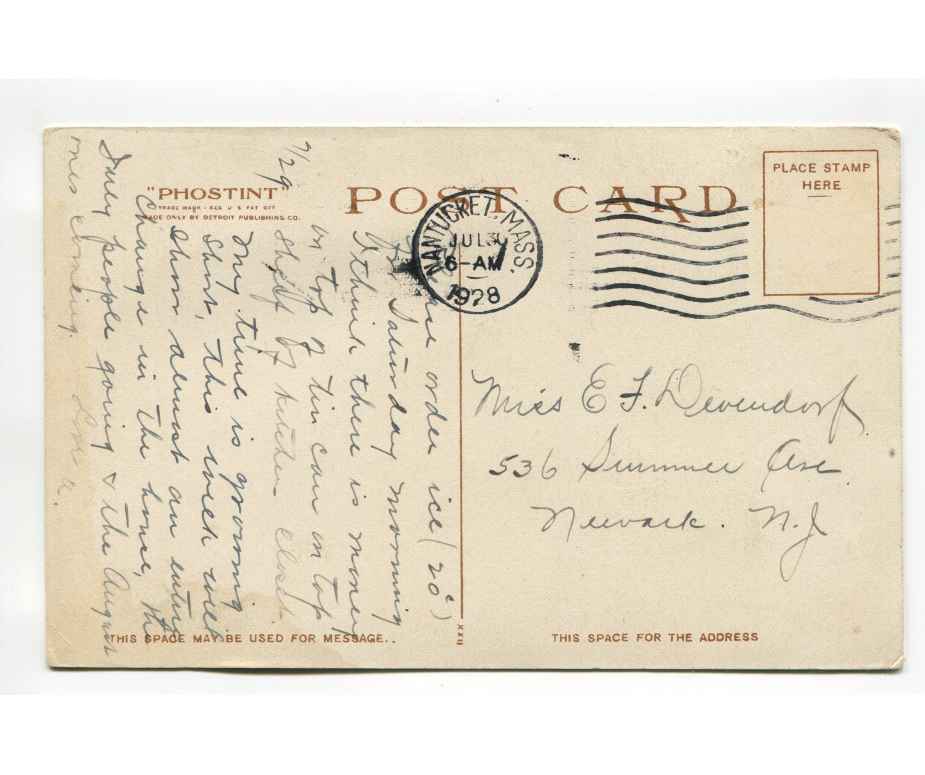 "PHOSTINT"
TRADE MARK - REG U S PAT OFF
MADE ONLY BY DETROIT PUBLISHING CO.
POST CARD
PLACE STAMP
HERE
NANTUCKET, MASS.
JUL 30
6-AM
1928
7/29
order ice (20¢)
Saturday morning
I think there is money
in top of tin can on top
shelf of kitchen closet
My time is growing
short, this week will
show almost an entire
change in the house, the
July people going & the August
ones coming. Love
Miss E F. Devendorf
536 Summer Ave
Newark. N.J
THIS SPACE MAY BE USED FOR MESSAGE..
XXX
THIS SPACE FOR THE ADDRESS